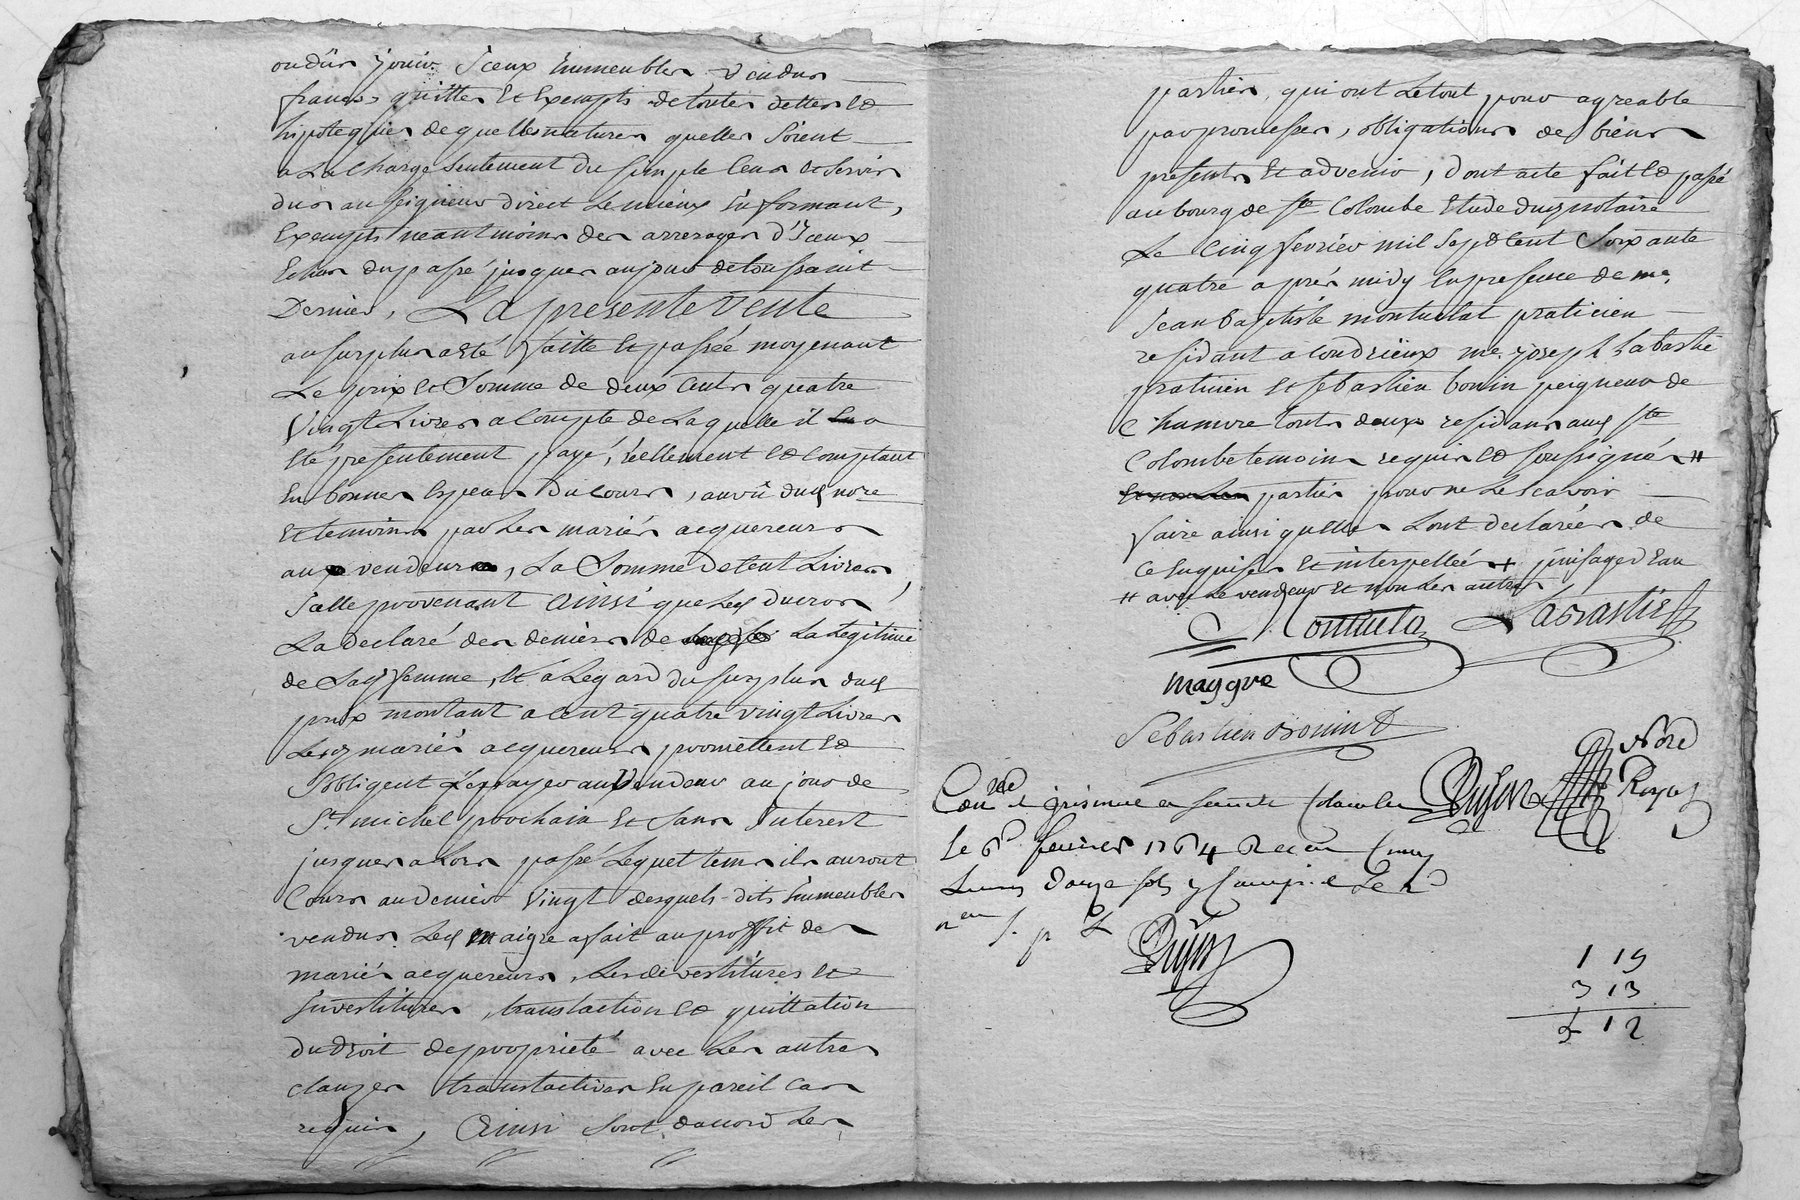 ou dûs jouir Iceux Immeubles vendus
francs quittes Et Exempts de toutes dettes et
hipoteques de quelles natures quelles soient
a La charge seulement du simple Cens et servis
dus au seigneur direct Le mieux Informant,
Exempts neantmoins des arrerages d'Iceux
Echus du passé jusques au jour de toussaint
Dernier, La presente vente
au surplus a Eté faitte Et passée moyenant
Le prix et Somme de deux Cents quatre
Vingt Livres a Compte de Laquelle il a
Eté presentement payé, réellement et comptant
En bonnes Especes Du Cours, au vû dud nore
Et temoins par Les mariés acquereurs
au vendeur, La Somme de Cent Livres
Icelle provenant Ainsi que Led ducros
La declaré des deniers de La Legitime
de Sad femme, Et a Legard du surplus dud
prix montant a Cent quatre vingt Livres
Lesd mariés acquereurs promettent et
sobligent de payer au Vendeur au jour de
St michel prochain Et sans Interest
jusques a Lors passé Lequel tems ils auront
Cours au Denier Vingt desquels dits Immeubles
vendus Led maigre a fait au proffit des
mariés acquereurs, Les devestitures et
Investitures, translaction et quittation
du droit de proprieté avec Les autres
clauzes translatives En pareil cas
requis, Ainsi Sont d'accord Les
parties, qui ont Le tout pour agreable
par promesses, obligations de biens
presents Et advenir, dont acte fait et passé
au bourg de Ste Colombe Etude dud notaire
Le Cinq fevrier mil Sept Cent Soixante
quatre après midy En presence de me.
Jean baptiste montuclat praticien
residant a Condrieux me. joseph Labastie
praticien Et sebastien bonin peigneur de
Chanvre touts deux residans aud Ste
Colombe temoins requis et soussignés #
parties pour ne Le scavoir
faire ainsi quelles Lont declarées de
ce Enquises Et interpellées
# avec Le vendeur Et non Les autres
Labastie
maygre
Sebastien Bonin
Le 6e fevrier 1764 Recu Cinq
Livres Douze sols
Dujas
Nore
Royal
1 19
3 13
5 12